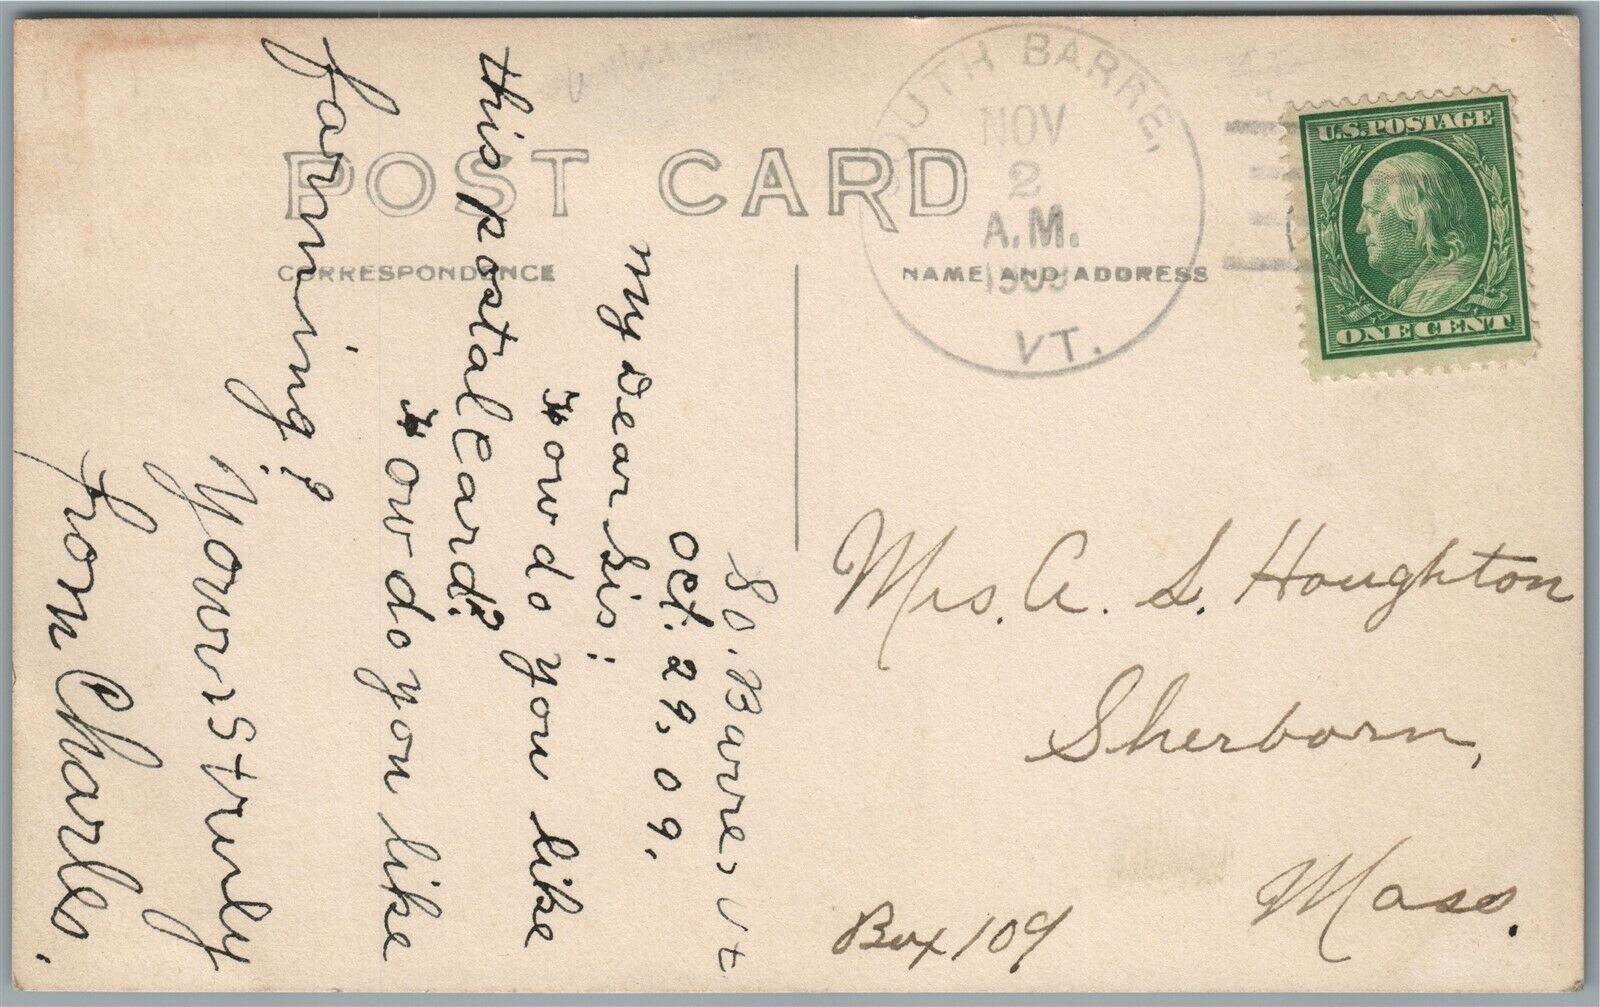 POST CARD
CORRESPONDENCE
NAME AND ADDRESS
SOUTH BARRE,
NOV
2
A.M.
1909
VT.
U.S. POSTAGE
ONE CENT
So. Barre, Vt
Oct. 29, 09.
My Dear Sis:
How do you like
this postal Card?
How do you like
farming?
Yours truly
from Charles.
Mrs. A. S. Houghton
Sherborn,
Mass.
Box 109